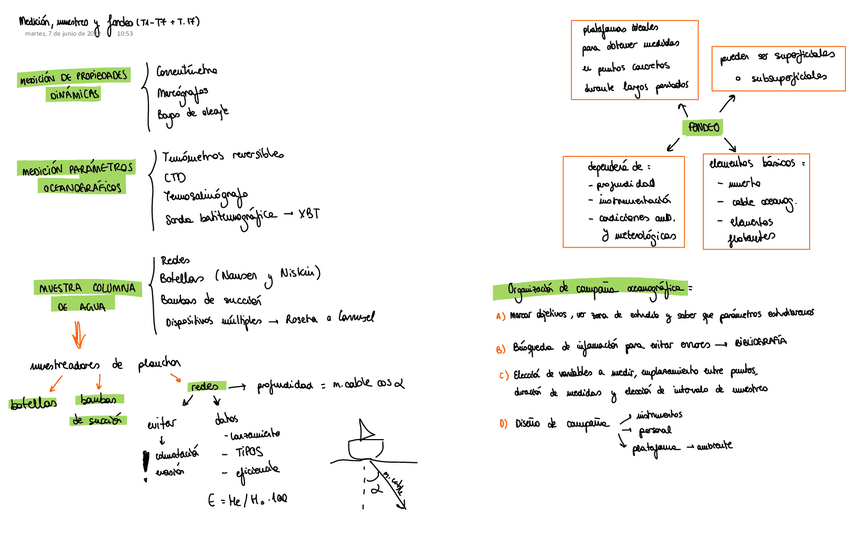 Medición, muestreo y fondeo (T1-T7 + T.17)
martes, 7 de junio de 20 10:53
MEDICIÓN DE PROPIEDADES
DINÁMICAS
Correntímetro
Mareógrafos
Boyas de oleaje
MEDICIÓN PARÁMETROS
OCEANOGRÁFICOS
Termómetros reversibles
CTD
Termosalinógrafo
Sonda batitermográfica → XBT
MUESTRA COLUMNA
DE AGUA
Redes
Botellas (Nansen y Niskin)
Bombas de succión
Dispositivos múltiples → Roseta o Carrusel
muestreadores de plancton
botellas
bombas
de succión
redes → profundidad = m.cable cos α
evitar
↓
! colmatación
evasión
datos
- lanzamiento
- TIPOS
- eficiencia
E = He / Ho · 100
m. cable
α
plataformas ideales
para obtener medidas
en puntos concretos
durante largos periodos
pueden ser superficiales
o subsuperficiales
FONDEO
dependerá de :
- profundidad
- instrumentación
- condiciones amb.
y meterológicas
elementos básicos =
- muerto
- cable oceanog.
- elementos
flotantes
Organización de campaña oceanográfica =
A) Marcar objetivos, ver zona de estudio y saber que parámetros estudiaremos
B) Búsqueda de información para evitar errores → BIBLIOGRAFÍA
C) Elección de variables a medir, emplazamiento entre puntos,
duración de medidas y elección de intervalo de muestreo
D) Diseño de campaña
→ instrumentos
→ personal
→ plataforma → ambiente